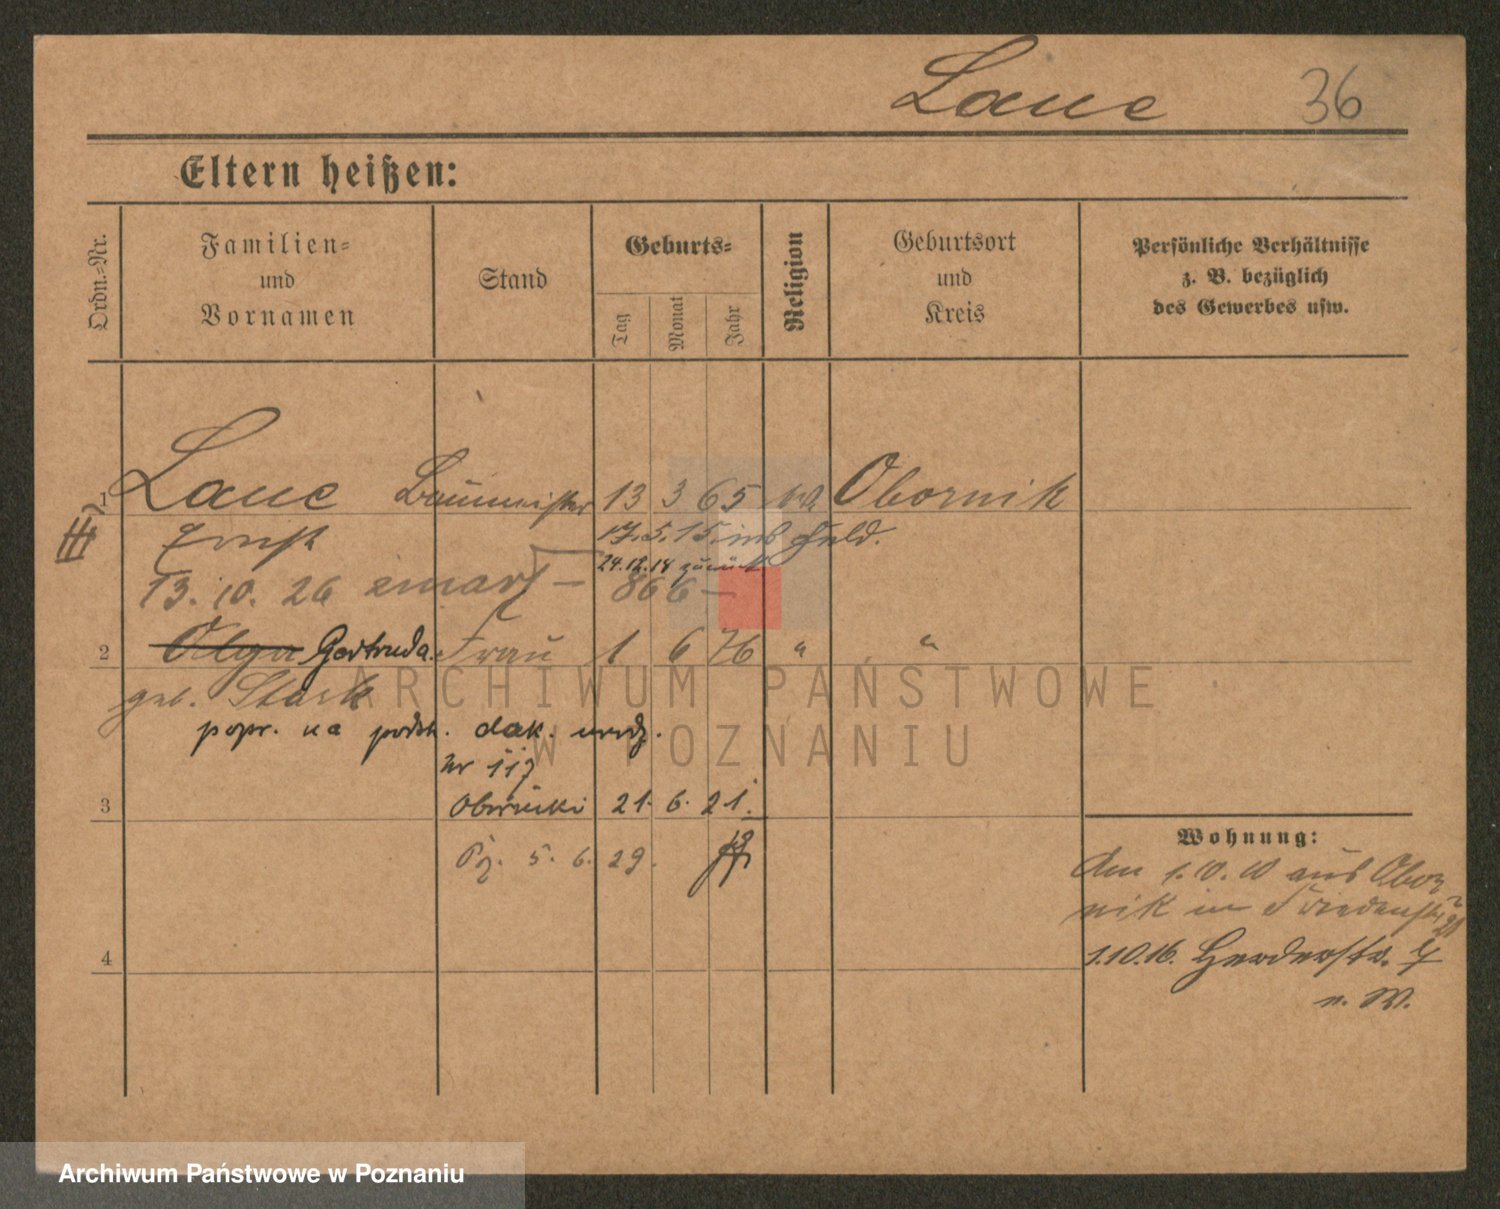 Laue 36
Eltern heißen:
Ordn.=Nr.
Familien=
und
Vornamen
Stand
Geburts=
Tag
Monat
Jahr
Religion
Geburtsort
und
Kreis
Persönliche Verhältnisse
z. B. bezüglich
des Gewerbes usw.
1 Laue Baumeister 13 3 65 Obornik
Ernst 17.5.15. ins Feld.
24.12.18 zurück
13. 10. 26 zmarł – 866 –
2 Olga Gertruda. Frau 1 6 76 " "
geb. Stark
popr. na podst. dok. urodz.
nr 117
3 Oborniki 21. 6. 21.
Pz. 5. 6. 29.
4
Wohnung:
Am 1.10.10 aus Obor
nik in Friedenstr.
1.10.16. Herderstr. 7
n. W.
ARCHIWUM PAŃSTWOWE
W POZNANIU
Archiwum Państwowe w Poznaniu